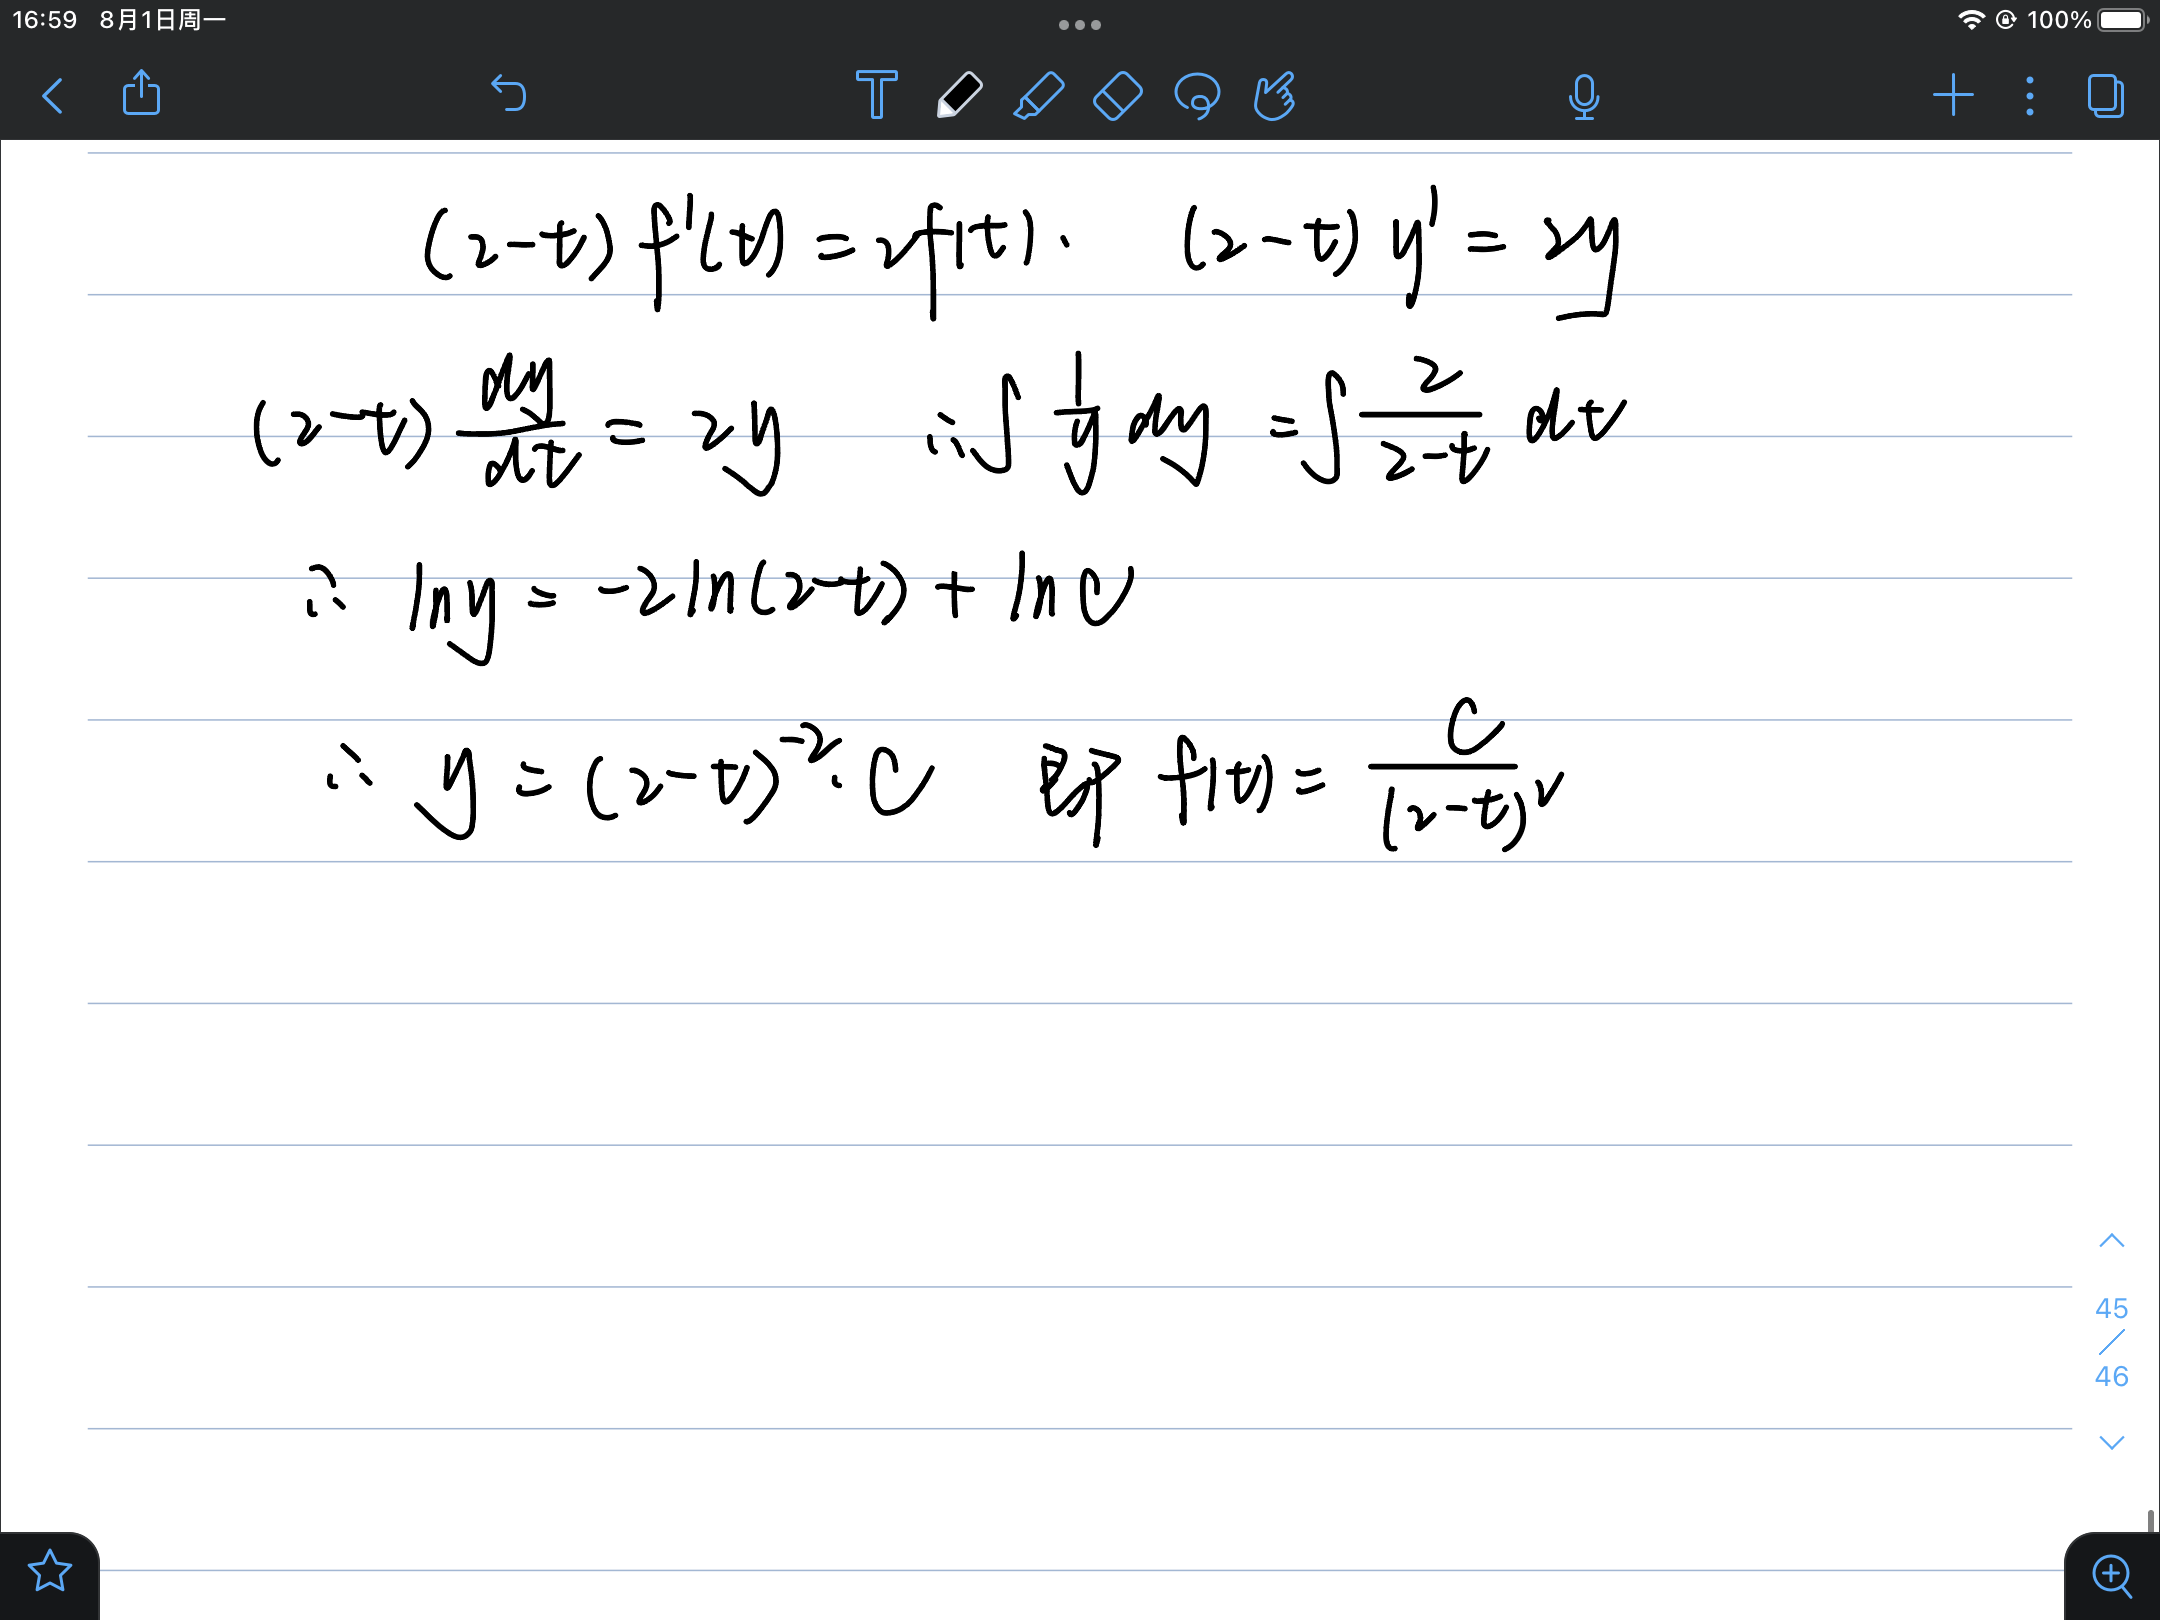 16:59 8月1日周一 100%
T
(2-t) f'(t) = 2f(t). (2-t) y' = 2y
(2-t) dy/dt = 2y ∴ ∫ 1/y dy = ∫ 2/(2-t) dt
∴ lny = -2ln(2-t) + lnC
∴ y = (2-t)^-2 · C 即 f(t) = C/(2-t)^2
45
/
46